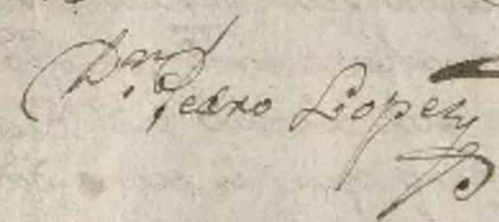 Dn Pedro Lopez